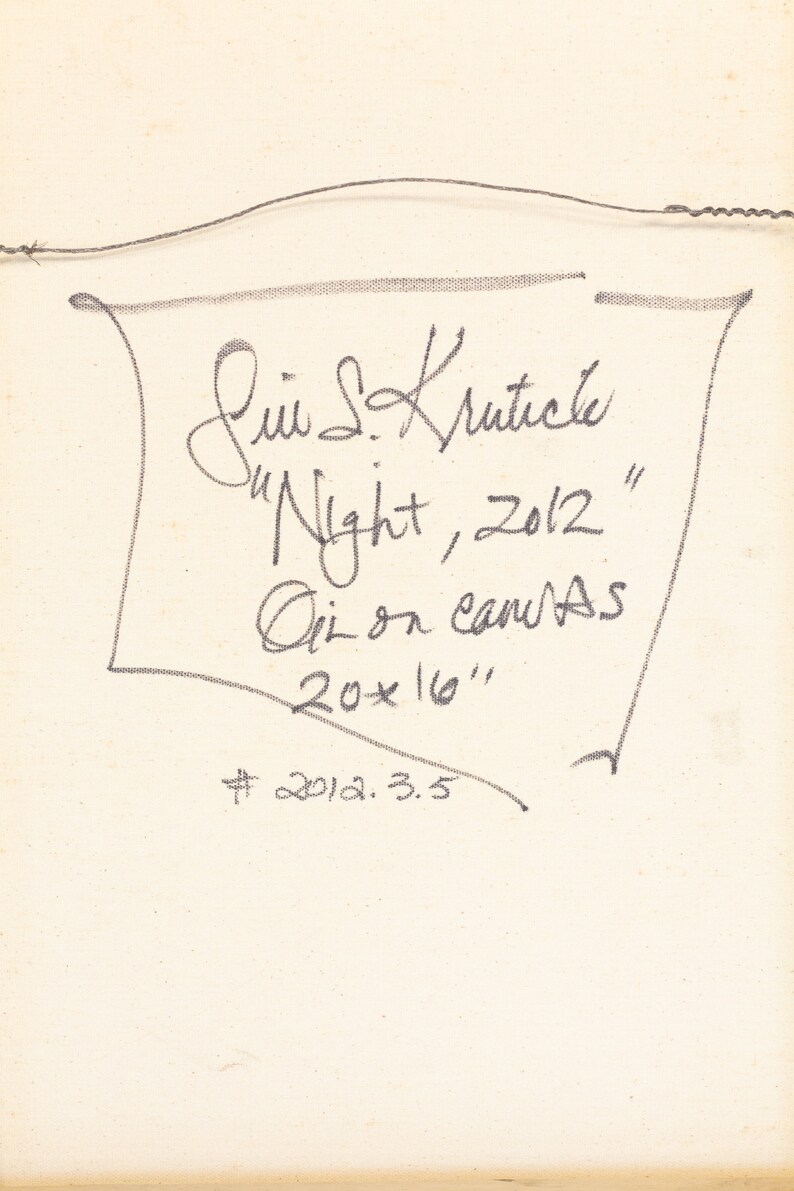 Jill S. Krutick
"Night, 2012"
Oil on canvas
20x16"
# 2012.3.5